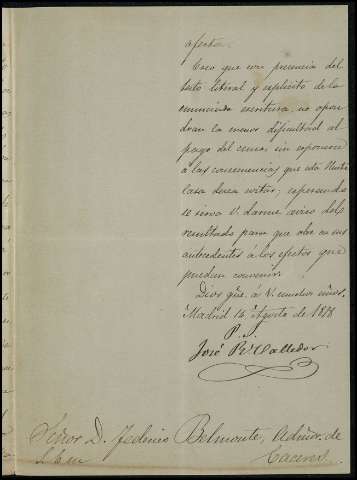 afecta.
Creo que con presencia del
testo literal y esplicito de la
enunciada escritura, no opon
dran la menor dificultad al
pago del censo, sin esponerse
á las consecuencias que esta Ilustre
Casa desea evitar; esperando
se sirva V. darme aviso del
resultado para que obre en sus
antecedentes á los efectos que
puedan convenir.
Dios gûe. á V. muchos años.
Madrid 14 Agosto de 1878
P.
José
Señor D. Federico Belmonte, Admor. de
Caceres.